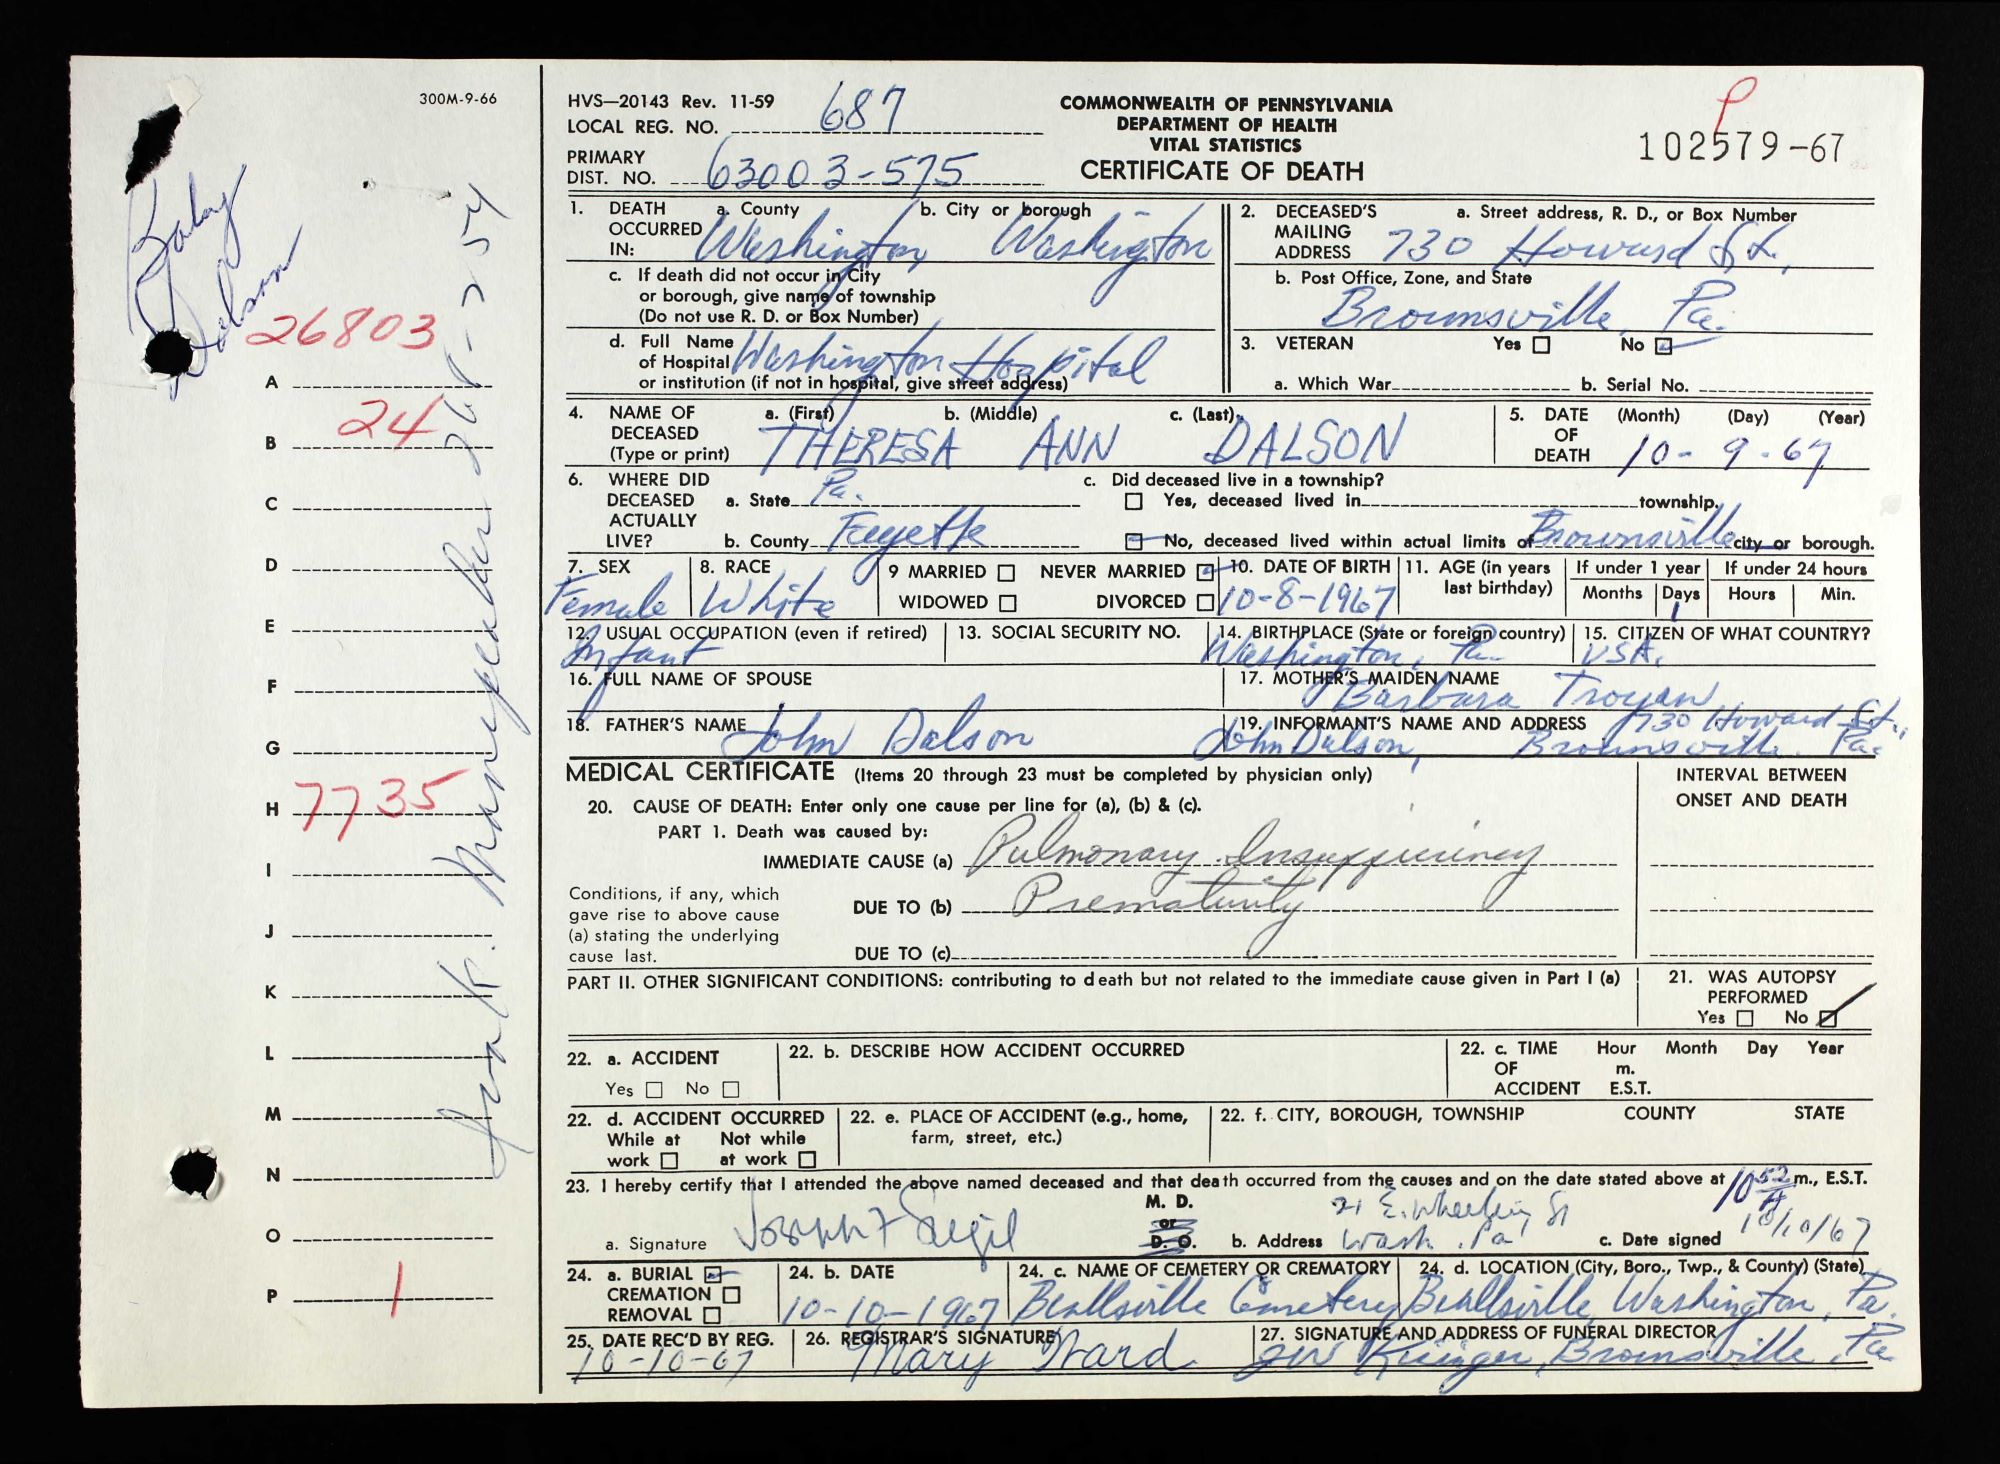 300M-9-66
Baby
Dalson
26803
A
B 24
C
D
E
F
G
H 7735
I
J
K
L
M
N
O
P 1
HVS—20143 Rev. 11-59
LOCAL REG. NO. 687
PRIMARY
DIST. NO. 63003-575
COMMONWEALTH OF PENNSYLVANIA
DEPARTMENT OF HEALTH
VITAL STATISTICS
CERTIFICATE OF DEATH
P
102579-67
1. DEATH OCCURRED IN: a. County Washington b. City or borough Washington
c. If death did not occur in City
or borough, give name of township
(Do not use R. D. or Box Number)
d. Full Name
of Hospital Washington Hospital
or institution (if not in hospital, give street address)
2. DECEASED'S MAILING ADDRESS a. Street address, R. D., or Box Number
730 Howard St.,
b. Post Office, Zone, and State
Brownsville, Pa.
3. VETERAN Yes No
a. Which War b. Serial No.
4. NAME OF DECEASED (Type or print) a. (First) b. (Middle) c. (Last)
THERESA ANN DALSON
5. DATE OF DEATH (Month) (Day) (Year)
10-9-67
6. WHERE DID DECEASED ACTUALLY LIVE? a. State Pa.
b. County Fayette
c. Did deceased live in a township?
Yes, deceased lived in township.
No, deceased lived within actual limits of Brownsville city or borough.
7. SEX Female
8. RACE White
9 MARRIED NEVER MARRIED
WIDOWED DIVORCED
10. DATE OF BIRTH 10-8-1967
11. AGE (in years last birthday)
If under 1 year Months Days 1
If under 24 hours Hours Min.
12. USUAL OCCUPATION (even if retired) Infant
13. SOCIAL SECURITY NO.
14. BIRTHPLACE (State or foreign country) Washington, Pa.
15. CITIZEN OF WHAT COUNTRY? USA.
16. FULL NAME OF SPOUSE
17. MOTHER'S MAIDEN NAME Barbara Troyan
18. FATHER'S NAME John Dalson
19. INFORMANT'S NAME AND ADDRESS 730 Howard St.,
John Dalson, Brownsville, Pa.
MEDICAL CERTIFICATE (Items 20 through 23 must be completed by physician only)
INTERVAL BETWEEN
ONSET AND DEATH
20. CAUSE OF DEATH: Enter only one cause per line for (a), (b) & (c).
PART 1. Death was caused by:
IMMEDIATE CAUSE (a) Pulmonary Insufficiency
Conditions, if any, which
gave rise to above cause
(a) stating the underlying
cause last.
DUE TO (b) Prematurity
DUE TO (c)
PART II. OTHER SIGNIFICANT CONDITIONS: contributing to death but not related to the immediate cause given in Part I (a)
21. WAS AUTOPSY
PERFORMED
Yes No
22. a. ACCIDENT
Yes No
22. b. DESCRIBE HOW ACCIDENT OCCURRED
22. c. TIME OF ACCIDENT Hour m. E.S.T. Month Day Year
22. d. ACCIDENT OCCURRED
While at work Not while at work
22. e. PLACE OF ACCIDENT (e.g., home,
farm, street, etc.)
22. f. CITY, BOROUGH, TOWNSHIP COUNTY STATE
23. I hereby certify that I attended the above named deceased and that death occurred from the causes and on the date stated above at 10 52 A m., E.S.T.
a. Signature Joseph F
M. D.
or
D. O.
b. Address 21 E. Wheeling St
Wash. Pa
c. Date signed 10/10/67
24. a. BURIAL
CREMATION
REMOVAL
24. b. DATE
10-10-1967
24. c. NAME OF CEMETERY OR CREMATORY
Beallsville Cemetery
24. d. LOCATION (City, Boro., Twp., & County) (State)
Beallsville, Washington, Pa.
25. DATE REC'D BY REG.
10-10-67
26. REGISTRAR'S SIGNATURE
Mary Ward
27. SIGNATURE AND ADDRESS OF FUNERAL DIRECTOR
Brownsville, Pa